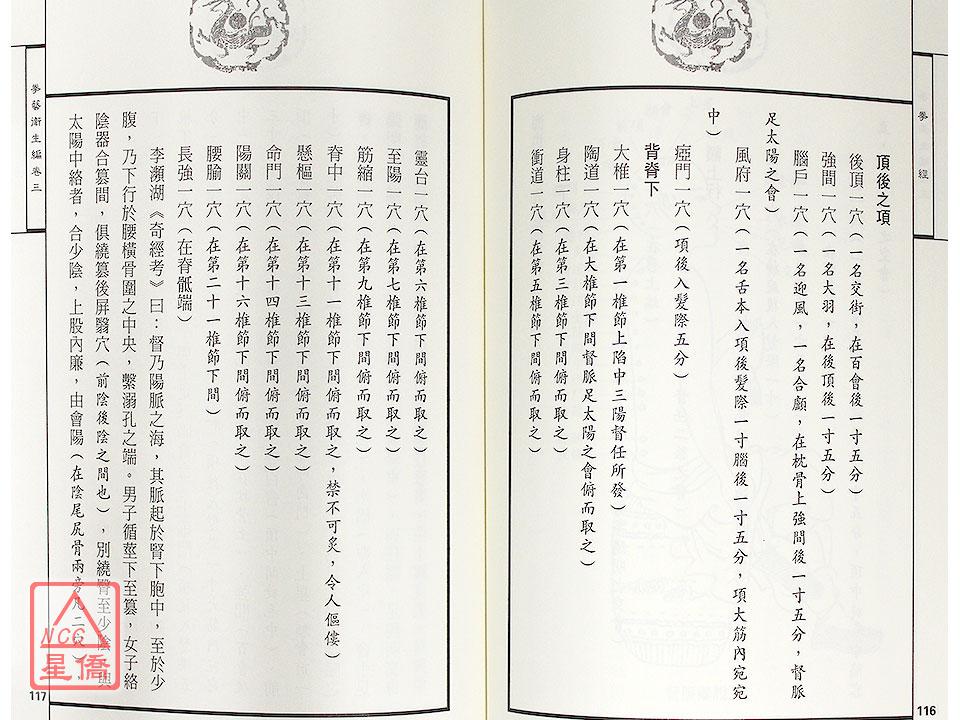 頂後之項
後頂一穴(一名交街，在百會後一寸五分)
強間一穴(一名大羽，在後頂後一寸五分)
腦戶一穴(一名迎風，一名合顱，在枕骨上強間後一寸五分，督脈
足太陽之會)
風府一穴(一名舌本入項後髮際一寸腦後一寸五分，項大筋內宛宛
中)
瘂門一穴(項後入髮際五分)
背脊下
大椎一穴(在第一椎節上陷中三陽督任所發)
陶道一穴(在大椎節下間督脈足太陽之會俯而取之)
身柱一穴(在第三椎節下間俯而取之)
衝道一穴(在第五椎節下間俯而取之)
116
拳藝衛生編卷三
靈台一穴(在第六椎節下間俯而取之)
至陽一穴(在第七椎節下間俯而取之)
筋縮一穴(在第九椎節下間俯而取之)
脊中一穴(在第十一椎節下間俯而取之，禁不可炙，令人傴僂)
懸樞一穴(在第十三椎節下間俯而取之)
命門一穴(在第十四椎節下間俯而取之)
陽關一穴(在第十六椎節下間俯而取之)
腰腧一穴(在第二十一椎節下間)
長強一穴(在脊骶端)
李瀕湖《奇經考》曰：督乃陽脈之海，其脈起於腎下胞中，至於少
腹，乃下行於腰橫骨圍之中央，繫溺孔之端。男子循莖下至篡，女子絡
陰器合篡間，俱繞篡後屏翳穴(前陰後陰之間也)，別繞臀至少陰，與
太陽中絡者，合少陰，上股內廉，由會陽(在陰尾尻骨兩旁凡二穴)，
117
NCC
星僑